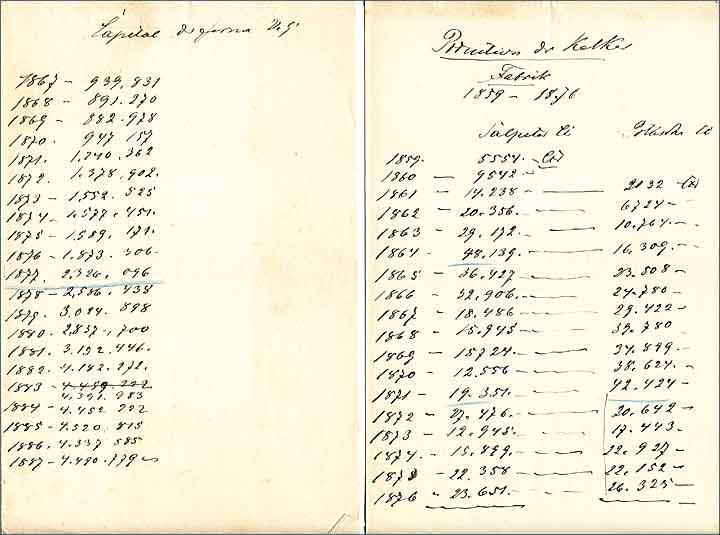 Capital der Firma V. G
1867 - 939,831
1868 - 891.270
1869 - 882.978
1870. 947 157
1871. 1.240.362
1872. 1.378.902.
1873 - 1.552.525
1874 - 1.577.451.
1875 - 1.589.171.
1876 - 1.873.306.
1877. 2.326.096
1878 - 2.586.438
1879. 3.024.898
1880. 2.837.700
1881. 3.192.446.
1882. 4.182.272.
1883 - 4.459.222
4.391.983
1884 - 4.452 222
1885 - 4.520.815
1886. 4.337 585
1887 - 4.490.779
Production der Kalker
Fabrik
1859 - 1876
Salpeter Ct
1859. 5554. Ctr
1860 - 9542 -
1861 - 14.238 - 2032 Ctr
1862 - 20.356. - 6724 -
1863 - 29.172 - 10.764. -
1864 - 48.139. - 16.309. -
1865 - 36.427 - 23.508 -
1866 - 32.906. - 24.780 -
1867 - 18.486 - 29.422 -
1868 - 15.945 - 39.780
1869 - 15724. - 34.899. -
1870 - 12.556 - 38.624. -
1871 - 19.351. - 42.424 -
1872 - 27.476. - 20.642 -
1873 - 12.945. - 17.443 -
1874. - 15.899. - 22.927 -
1875 - 22.358 - 22.152 -
1876 - 23.651. - 26.325 -